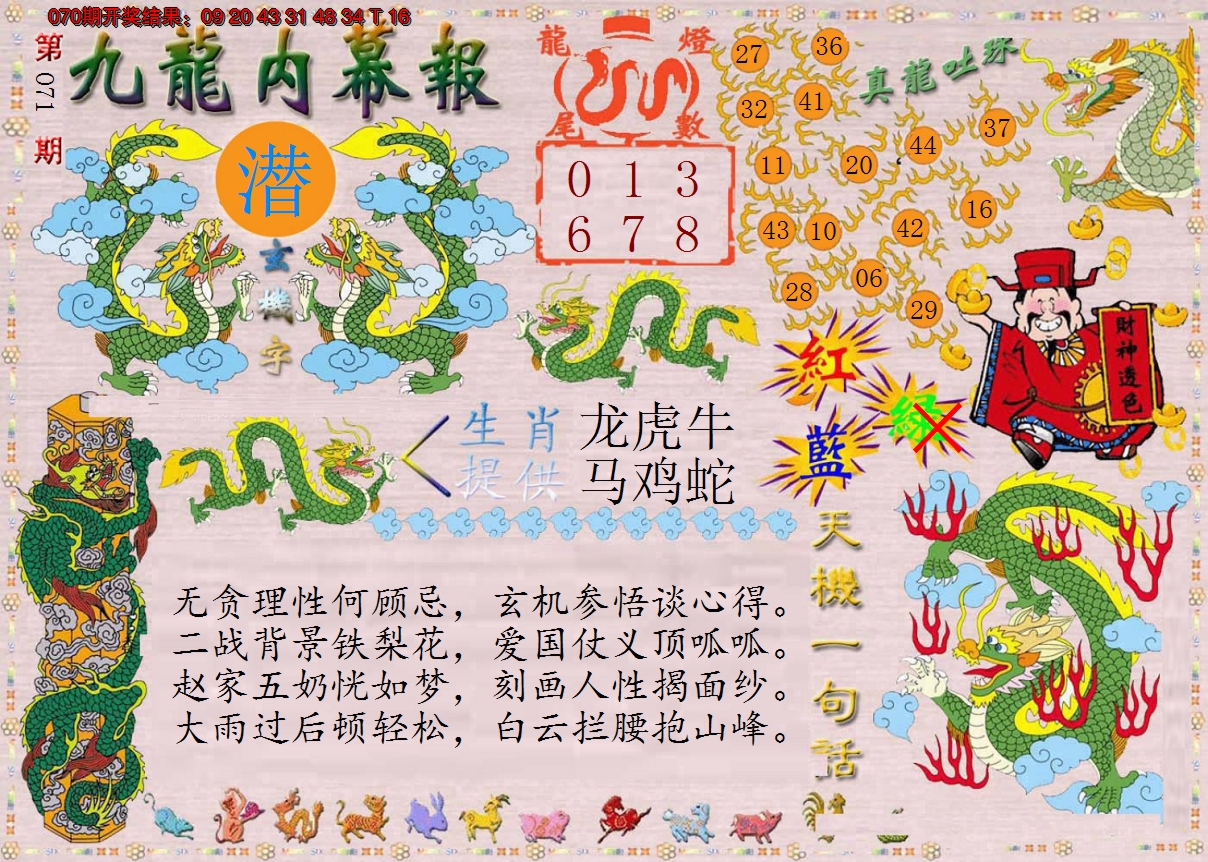 070期开奖结果：09 20 43 31 48 34 T 16
第071期
九龍内幕報
潜
玄機字
龍燈
尾數
0 1 3
6 7 8
真龍吐珠
27
36
32
41
44
37
11
20
16
43
10
42
28
06
29
財神透色
紅
綠
藍
生肖 龙虎牛
提供 马鸡蛇
天機一句话
无贪理性何顾忌，玄机参悟谈心得。
二战背景铁梨花，爱国仗义顶呱呱。
赵家五奶恍如梦，刻画人性揭面纱。
大雨过后顿轻松，白云拦腰抱山峰。